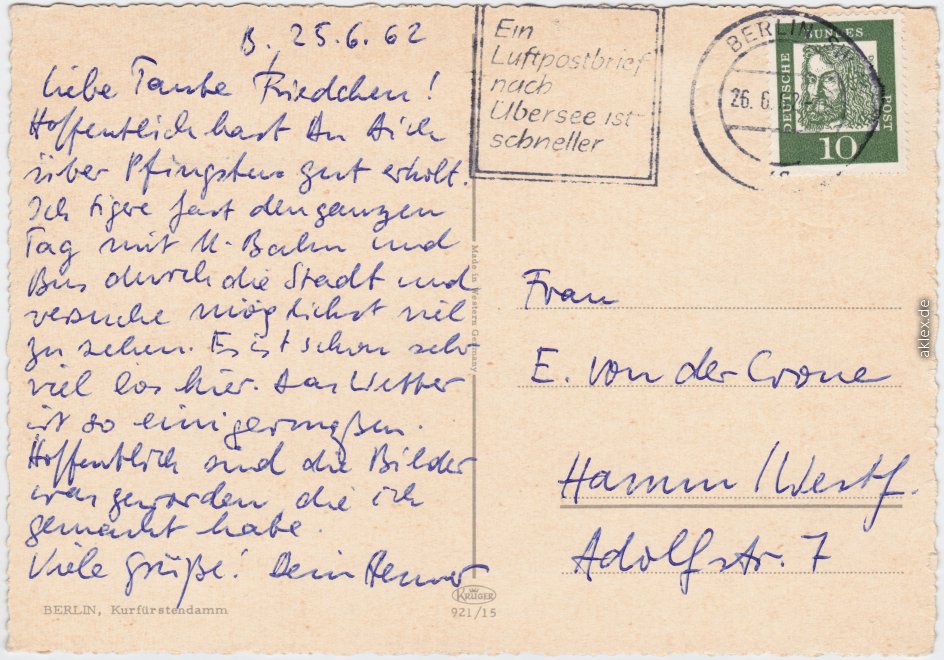 B., 25.6.62
Liebe Tante Friedchen!
Hoffentlich hast Du Dich
über Pfingsten gut erholt.
Ich tigere fast den ganzen
Tag mit U-Bahn und
Bus durch die Stadt und
versuche möglichst viel
zu sehen. Es ist schon sehr
viel los hier. Das Wetter
ist so einigermaßen.
Hoffentlich sind die Bilder
was geworden die ich
gemacht habe.
Viele Grüße! Dein
BERLIN, Kurfürstendamm
Ein
Luftpostbrief
nach
Übersee ist
schneller
BERLIN
26. 6.
DEUTSCHE
BUNDES
POST
10
Made in Western Germany
Frau
E. von der Crone
Hamm/Westf.
Adolfstr. 7
KRÜGER
921/15
aklex.de